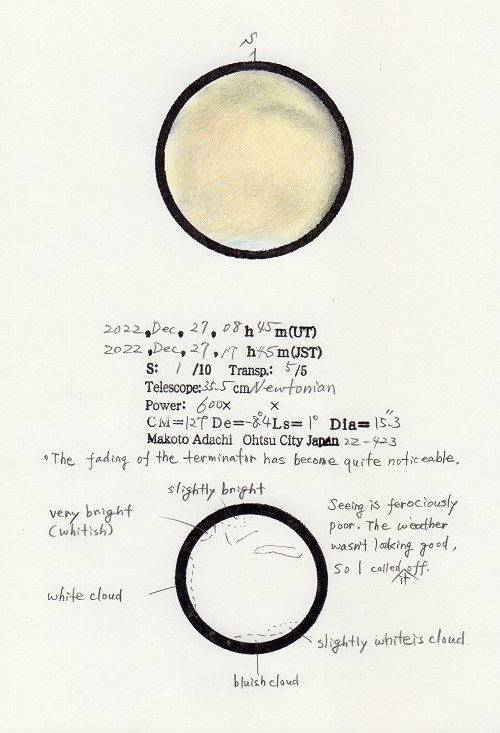 S
2022, Dec, 27, 08 h 45 m(UT)
2022, Dec, 27, 17 h 45 m(JST)
S: 1 /10 Transp.: 5/5
Telescope: 35.5 cm Newtonian
Power: 600× ×
CM=127° De=-8.4° Ls= 1° Dia= 15.3"
Makoto Adachi Ohtsu City Japan 22-423
• The fading of the terminator has become quite noticeable.
slightly bright
very bright
(whitish)
Seeing is ferociously
poor. The weather
wasn't looking good,
So I called it off.
white cloud
slightly whiteis cloud
bluish cloud